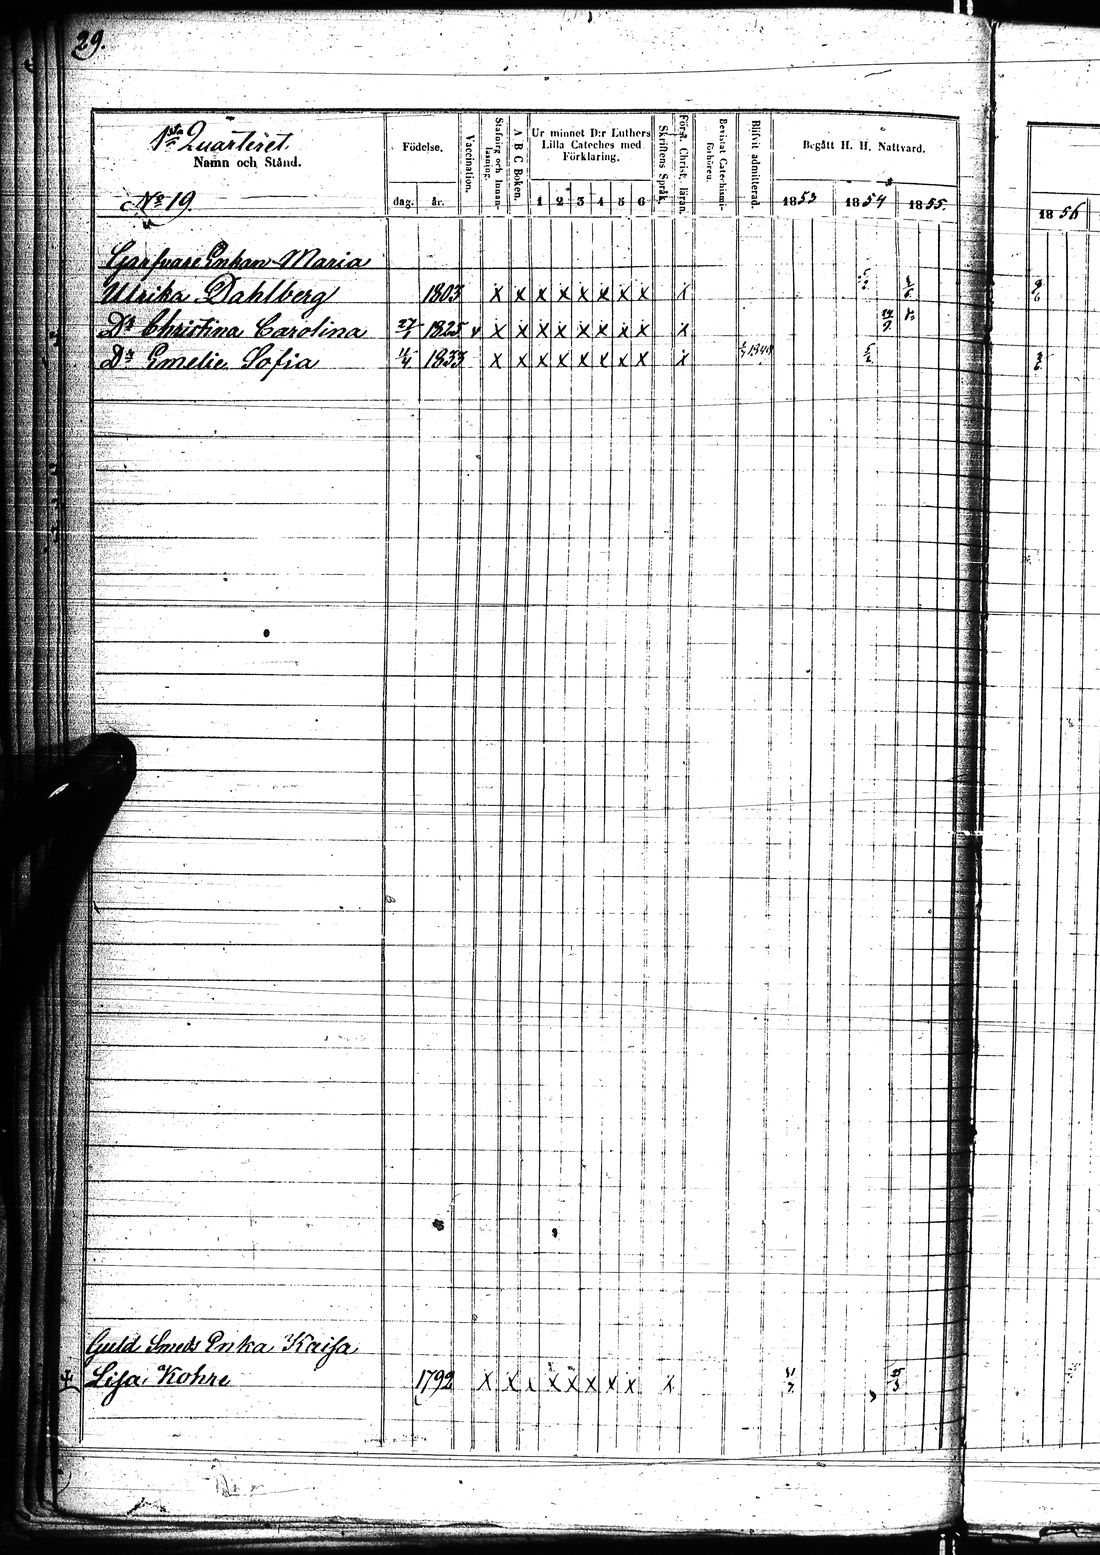 29.
1sta Quarteret
Namn och Stånd.
No 19.
Födelse.
dag. år.
Vaccination.
Stafning och Innan-
läsning.
A B C Boken.
Ur minnet D:r Luthers
Lilla Cateches med
Förklaring.
1 2 3 4 5 6
Skriftens Språk.
Först. Christ. läran.
Bevistat Catechismi-
förhören.
Blifvit admitterad.
Begått H. H. Nattvard.
1853 1854 1855.
1856
Garfvare Enkan Maria
Ulrika Dahlberg 1803 x x x x x x x x x
Dr Christina Carolina 1825 x x x x x x x x x
Dr Emelie Sofia 1833 x x x x x x x x x
Guld Smeds Enka Kaisa
Lisa Kohre 1792 x x x x x x x x x